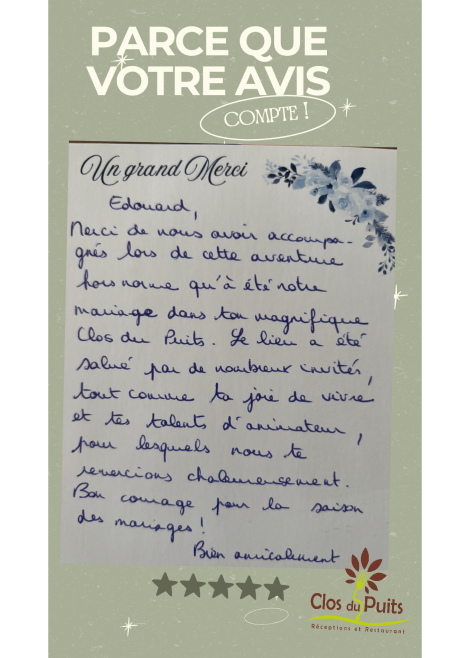 PARCE QUE
VOTRE AVIS
COMPTE !
Un grand Merci
Edouard,
Merci de nous avoir accompa-
gnés lors de cette aventure
hors norme qu'à été notre
mariage dans ton magnifique
Clos du Puits. Le lieu a été
salué par de nombreux invités,
tout comme ta joie de vivre
et tes talents d'animateur,
pour lesquels nous te
remercions chaleureusement.
Bon courage pour la saison
des mariages !
Bien amicalement
Clos du Puits
Réceptions et Restaurant